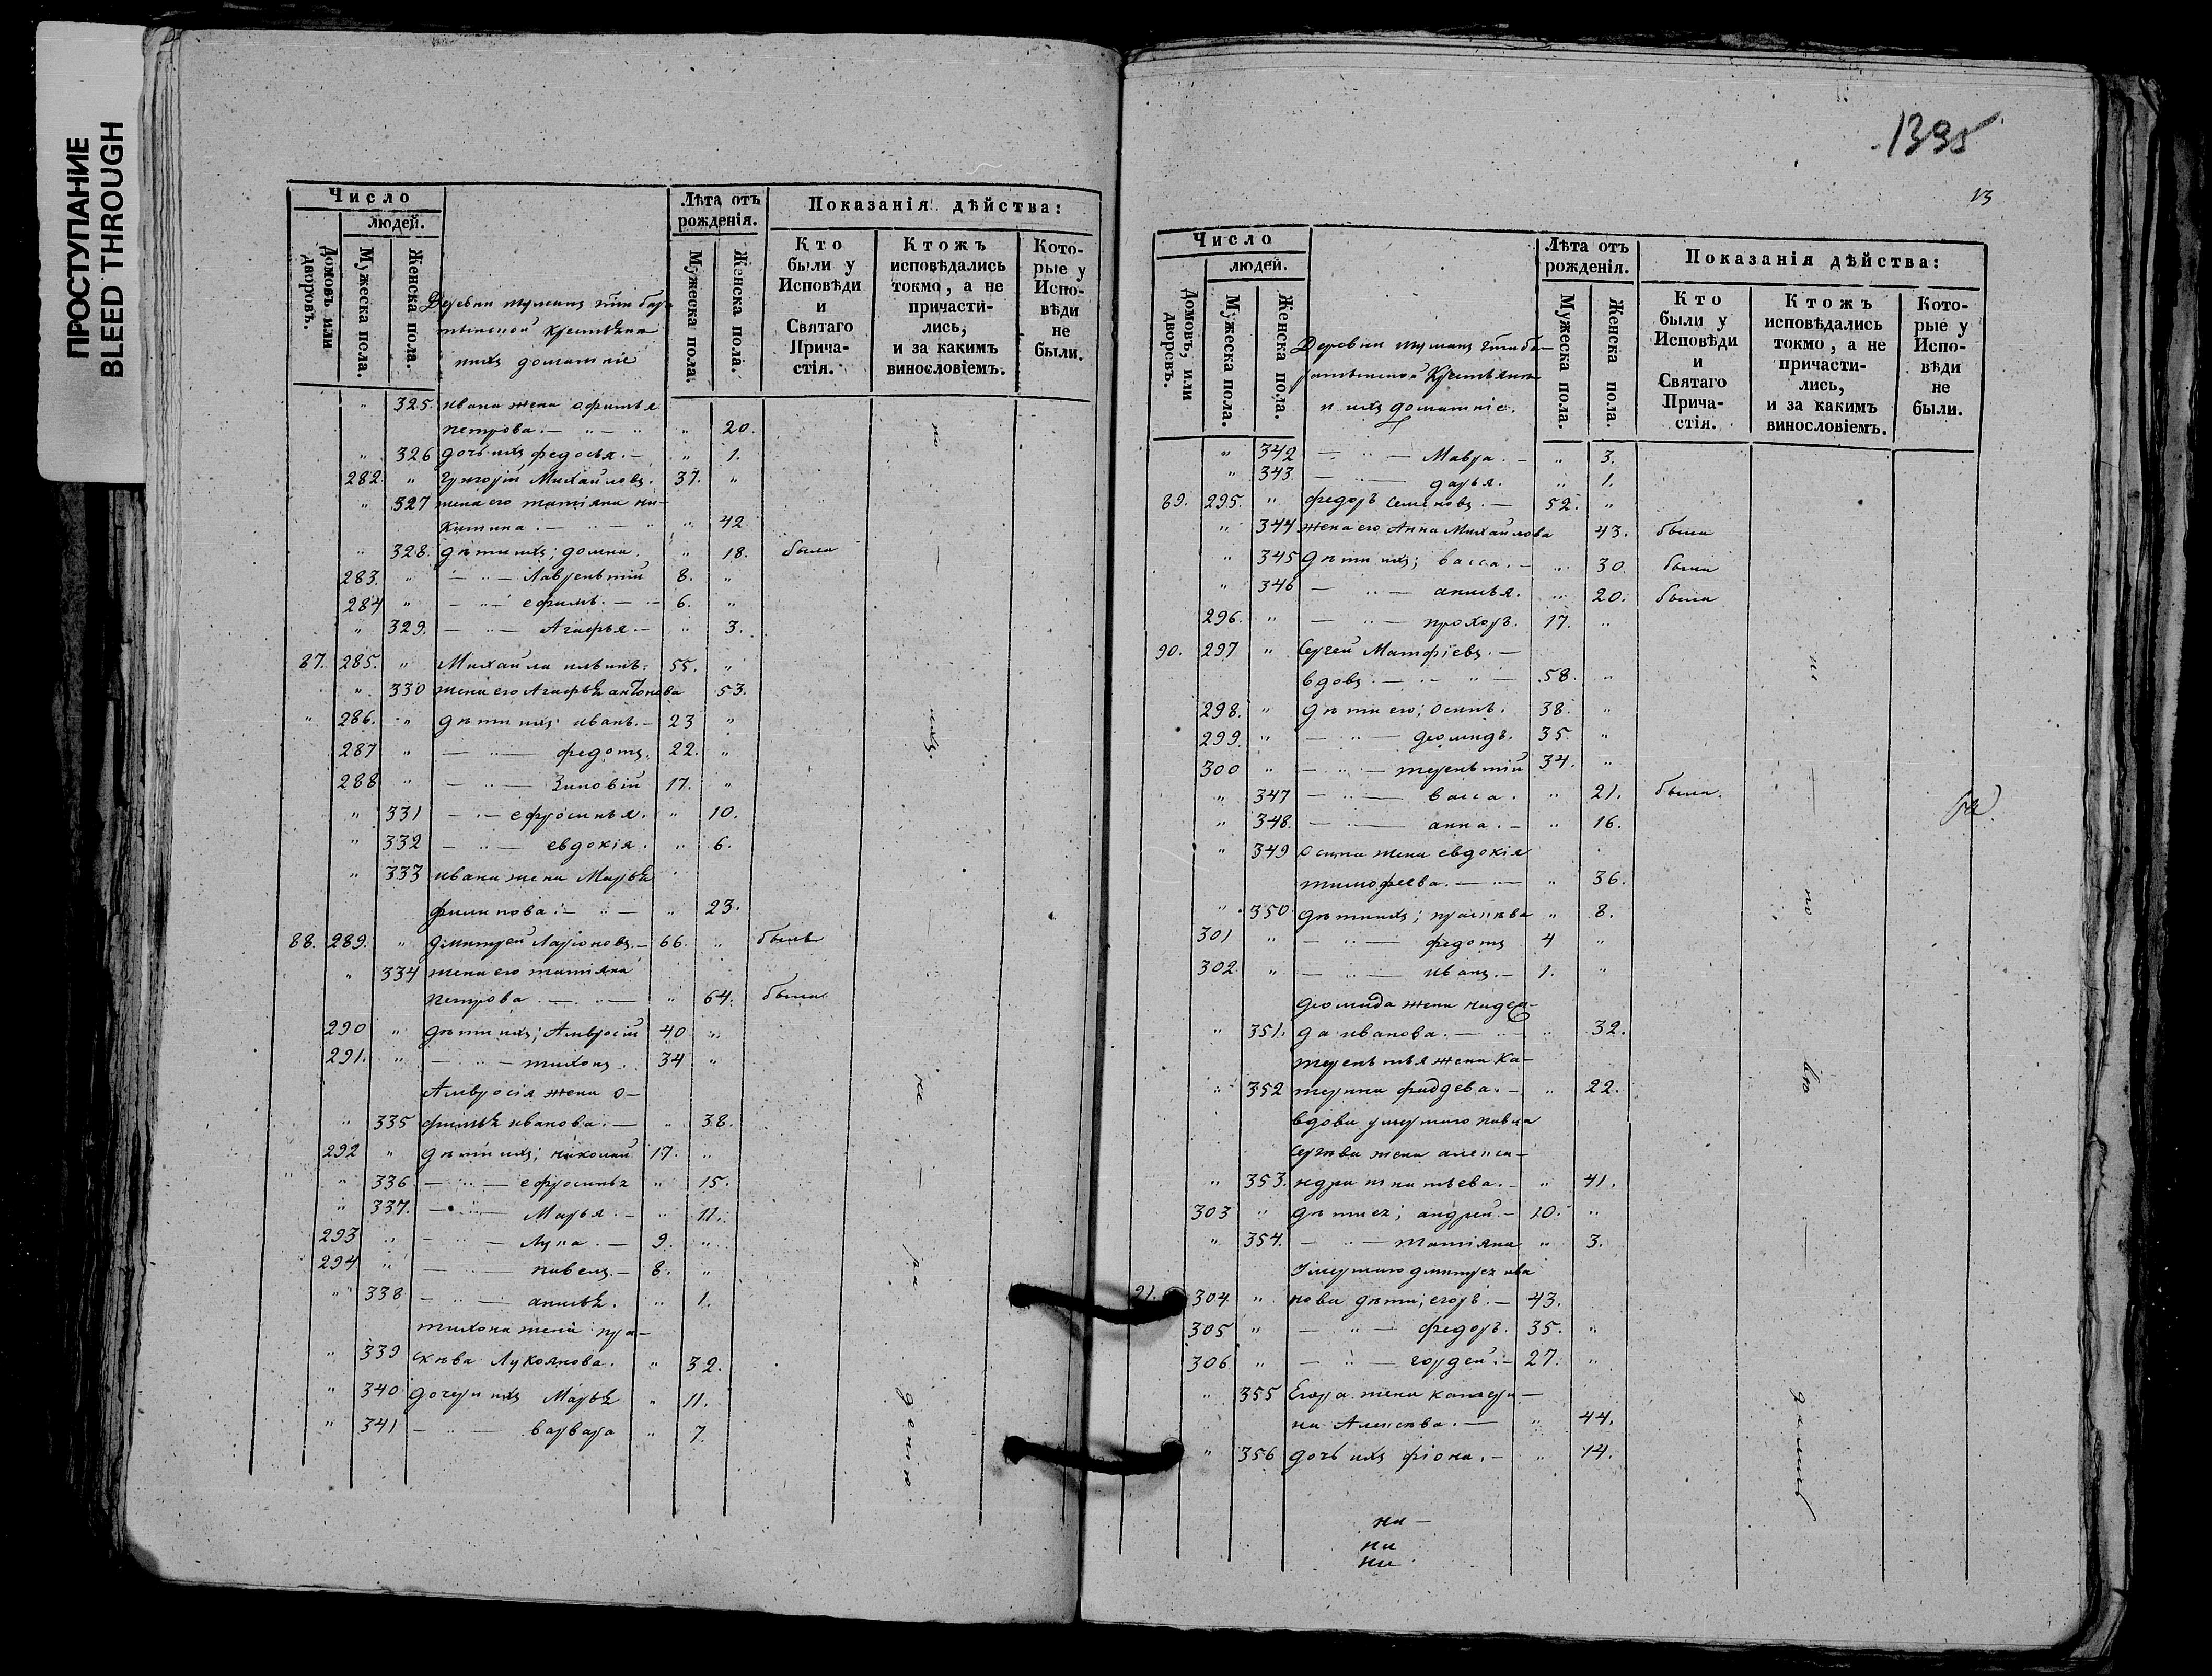 ПРОСТУПАНИЕ
BLEED THROUGH
Число
людей.
Домовъ или дворовъ.
Мужеска пола.
Женска пола.
Лѣта отъ рожденія.
Мужеска пола.
Женска пола.
Показанія дѣйства:
Кто были у Исповѣди и Святаго Прича- стія.
Ктожъ исповѣдались токмо, а не причасти- лись, и за какимъ винословіемъ.
Кото- рые у Испо- вѣди не были.
домашніе
" 325. ивана жена Офимья
петрова. — " — " " 20.
" 326 дочь ихъ федосья. — " 1.
282. " Григорій Михайловъ. 37. "
" 327 жена его татіяна ни-
китина. — " — " " 42
" 328. дѣти ихъ; домна. " 18. была
283. " — " — Лаврентій 8. "
284 " — " — ефимъ. — 6. "
" 329. — " — Агафья. — " 3.
87. 285. " Михайла ильинъ. 55. "
" 330 жена его Агафья антонова 53.
" 286. " дѣти ихъ иванъ. — 23 "
287 " — " — федотъ. 22. "
288 " — " — Зиновій 17. "
" 331 — " — ефросинья. " 10.
" 332 — " — евдокія. " 6.
" 333 ивана жена Марья
филипова. — " — " 23.
88. 289. " дмитрей Ларіоновъ. — 66. " былъ
" 334 жена его татіяна
петрова. — " — " 64. была
290 " дѣти ихъ; Амвросій 40 "
291. " — " — тихонъ. 34 "
Амвросія жена о-
" 335 фимья иванова. — " 38.
292 " дѣти ихъ; николай 17. "
" " 336 — " — ефросинья " 15.
" 337. — " — Марья. — " 11.
293 " — " — Лука. — 9. "
294 " — " — павелъ. — 8. "
" 338 — " — " 1.
тихона жена пра-
" 339 сковья Лукоянова. " 32.
" 340 дочери ихъ Марья " 11.
" 341 — " — варвара " 7
по — ихъ. — не — ра денію
1395
13
Число
людей.
Домовъ, или дворовъ.
Мужеска пола.
Женска пола.
Лѣта отъ рожденія.
Мужеска пола.
Женска пола.
Показанія дѣйства:
Кто были у Исповѣди и Святаго Прича- стія.
Ктожъ исповѣдались токмо, а не причасти- лись, и за какимъ винословіемъ.
Кото- рые у Испо- вѣди не были.
и ихъ домашніе.
" 342 — " — Мавра. — " 3.
" 343. — " — дарья. " 1.
89. 295. " федоръ семеновъ. — 52. "
" 344 жена его Анна Михайлова 43. была
" 345 дѣти ихъ; васса. — " 30 была
" 346 — " — " 20. была
296. " — " — прохоръ. 17. "
90. 297 " Сергей Матфіевъ. —
вдовъ. — " — 58. "
298. " дѣти его; осипъ. 38. "
299. " — " — деомидъ. 35 "
300 " — " — терентій 34. "
" 347 — " — васса. " 21. была.
" 348. — " — анна. — " 16.
" 349 Осипа жена евдокія
тимофеева. — " — " 36.
" 350 дѣти ихъ; " 8.
301 " — " — федотъ 4 "
302. " — " — иванъ. — 1. "
деомида жена надеж-
" 351. да иванова. — " — " 32.
терентья жена ка-
" 352 терина фадеева. — " 22.
вдова умершаго павла
сергѣева жена алекса-
" 353. ндра игнатьева. — " 41.
303 " дѣти ея; андрей — 10. "
" 354. — " — татіяна " 3.
Умершаго дмитрея ива
91. 304 " нова дѣти; егоръ. — 43.
305 " — " — федоръ. 35. "
306 " — " — гордей. — 27. "
" 355 Егора жена катери-
на Алексѣева. — " 44.
" 356 дочь ихъ фіона. — " 14.